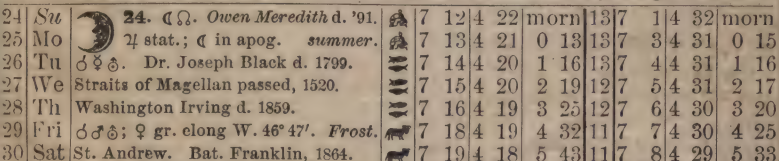 24 Su 24. ☾☊. Owen Meredith d. '91. 7 12 4 22 morn 13 7 1 4 32 morn
25 Mo ♃ stat.; ☾ in apog. summer. 7 13 4 21 0 13 13 7 3 4 31 0 15
26 Tu ☌☿♁. Dr. Joseph Black d. 1799. ♒ 7 14 4 20 1 16 13 7 4 4 31 1 16
27 We Straits of Magellan passed, 1520. 7 15 4 20 2 19 12 7 5 4 31 2 17
28 Th Washington Irving d. 1859. 7 16 4 19 3 25 12 7 6 4 30 3 20
29 Fri ☌♂♁; ♀ gr. elong W. 46° 47'. Frost. 7 18 4 19 4 32 11 7 7 4 30 4 25
30 Sat St. Andrew. Bat. Franklin, 1864. 7 19 4 18 5 43 11 7 8 4 29 5 33